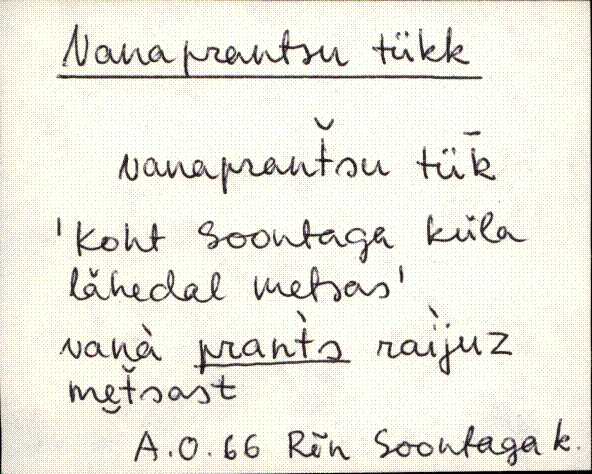 Vanaprantsu tükk
vanaprant̆su tük̄
'koht Soontaga küla
lähedal metsas'
vanà prant̀s raìjuz
met̆sast
A.O. 66 Rõn Soontaga k.